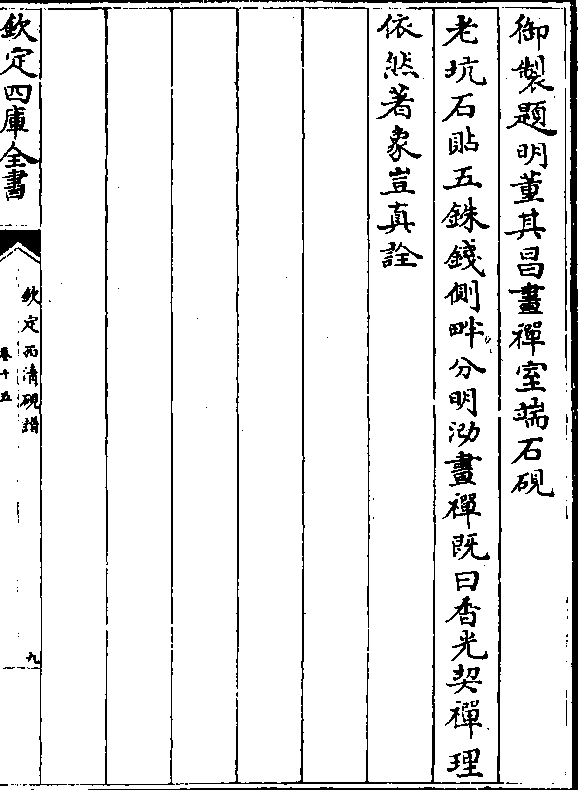 御製題明董其昌畫禪室端石硯
老坑石貼五銖錢側畔分明泐畫禪既曰香光契禪理
依然著象豈真詮
欽定四庫全書
欽定西清硯譜
卷十五
九